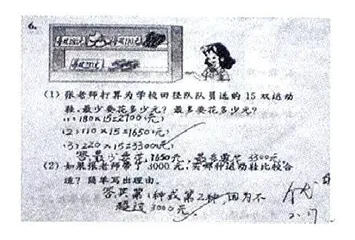 6.
(1) 张老师打算为学校田径队队员选购 15 双运动
鞋,最少要花多少元?最多要花多少元?
(1) 180×15=2700(元)
(2) 110×15=1650(元)
(3) 220×15=3300元
答:最少要花1650元,最多要花3300元。
(2) 如果张老师带了 3000 元,买哪种运动鞋比较合
适?简单写出理由。
答:买第1种或第2种,因为不
超过3000元。